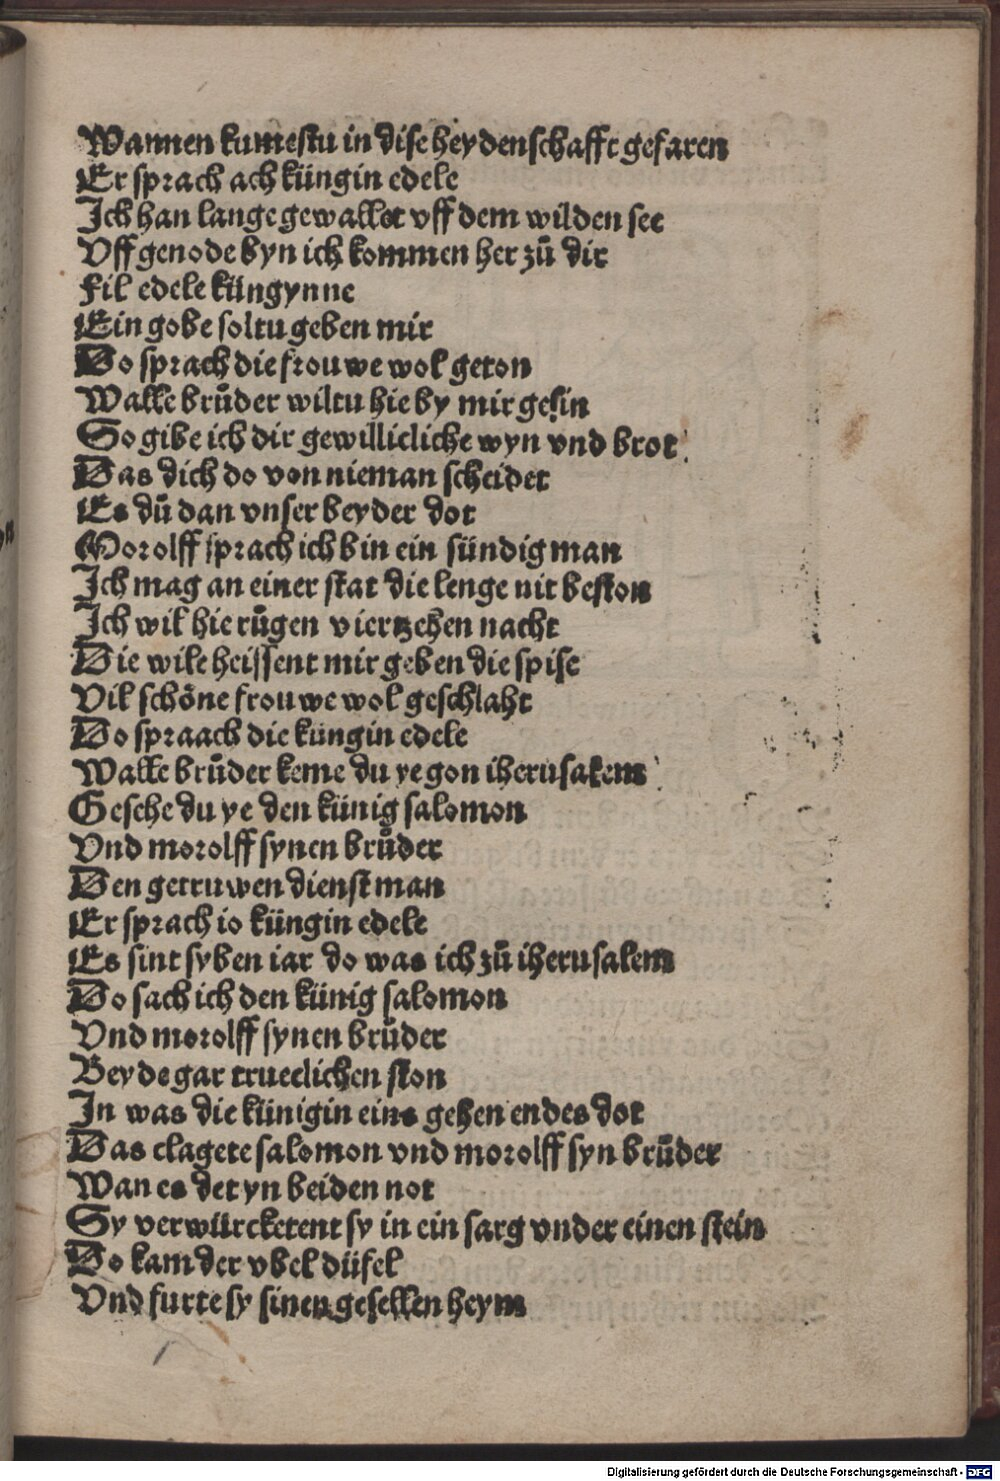 Wannen kumestu in dise heydenschafft gefaren
Er sprach ach küngin edele
Ich han lange gewallet vff dem wilden see
Vff genode byn ich kommen her zů dir
Fil edele küngynne
Ein gobe soltu geben mir
Do sprach die frouwe wol geton
Walle brůder wiltu hie by mir gesin
So gibe ich dir gewillicliche wyn vnd brot
Das dich do von nieman scheidet
Es dů dan vnser beyder dot
Morolff sprach ich bin ein sündig man
Ich mag an einer stat die lenge nit beston
Ich wil hie růgen viertzehen nacht
Die wile heissent mir geben die spise
Vil schöne frouwe wol geschlaht
Do spraach die küngin edele
Walle brůder keme du ye gon iherusalem
Gesehe du ye den künig salomon
Vnd morolff synen brůder
Den getruwen dienstman
Er sprach io küngin edele
Es sint syben iar do was ich zů iherusalem
Do sach ich den künig salomon
Vnd morolff synen brůder
Beyde gar truelichen ston
In was die künigin eins gehen endes dot
Das clagete salomon vnd morolff syn brůder
Wan es det yn beiden not
Sy verwürcketent sy in ein sarg vnder einen stein
Do kam der vbel düfel
Vnd furte sy sinen gesellen heym
Digitalisierung gefördert durch die Deutsche Forschungsgemeinschaft - DFG